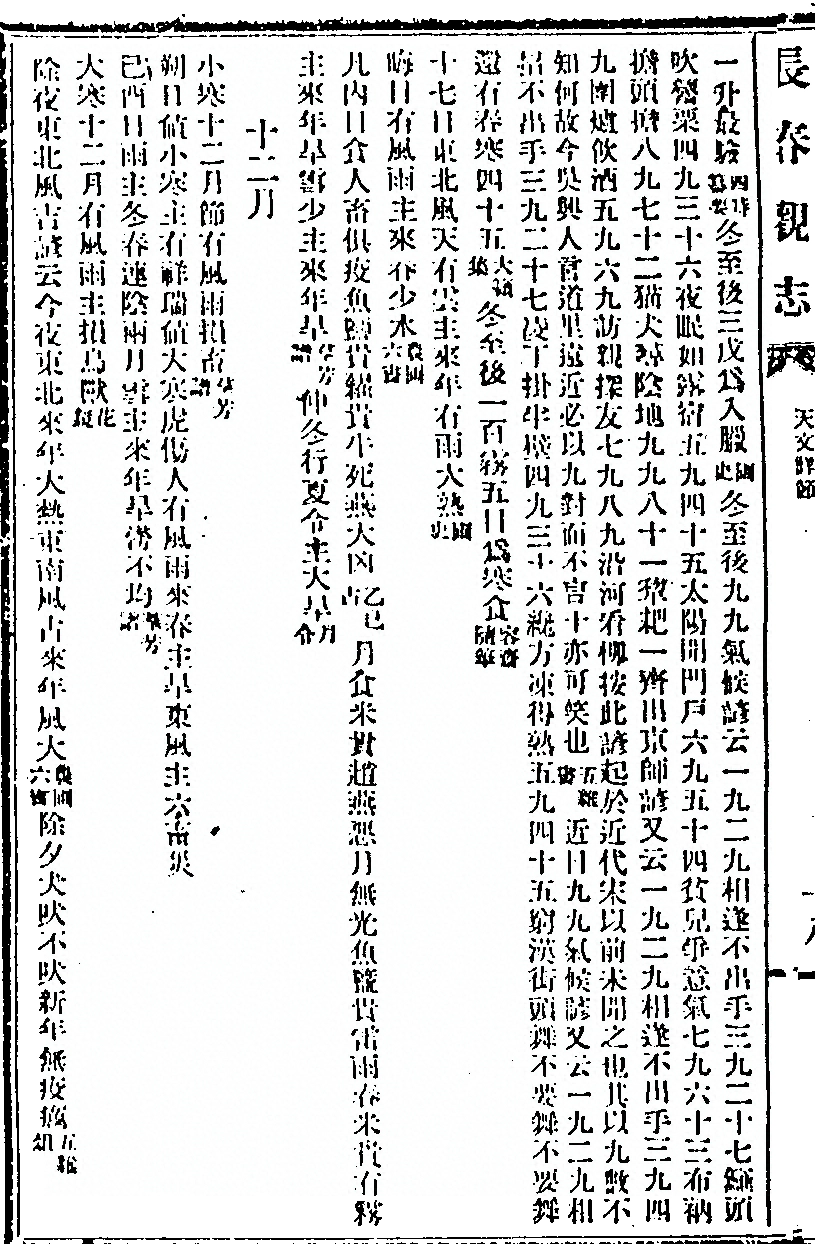 長春觀志
天文經師
一升最驗四時纂要冬至後三戊爲入臘國史冬至後九九氣候諺云一九二九相逢不出手三九二十七籬頭
吹觱栗四九三十六夜眠如露宿五九四十五太陽開門戶六九五十四貧兒爭意氣七九六十三布衲
擔頭擔八九七十二猫犬尋陰地九九八十一犂耙一齊出京師諺又云一九二九相逢不出手三九四
九圍爐飲酒五九六九訪親探友七九八九沿河看柳按此諺起於近代宋以前未聞之也其以九數不
知何故今吳興人言道里遠近必以九對而不言十亦可笑也五雜俎近日九九氣候諺又云一九二九相
招不出手三九二十七凌丁掛牛欄四九三十六綫方凍得熟五九四十五窮漢街頭舞不要舞不要舞
還有春寒四十五冬至後一百零五日爲寒食容齋隨筆
十七日東北風天有雲主來年有雨大熟國史
晦日有風雨主來春少水農圃六書
凡內日食人畜俱疫魚鹽貴糴貴牛死燕大凶乙巳占月食米貴趙燕惡月無光魚鹽貴雷雨春米貴有霧
主來年旱雪少主來年旱羣芳譜仲冬行夏令主大旱月令
十二月
小寒十二月節有風雨損畜羣芳譜
朔日値小寒主有祥瑞値大寒虎傷人有風雨來春主旱東風主六畜災
己酉日雨主冬春連陰雨月雲主來年旱澇不均羣芳譜
大寒十二月有風雨主損鳥獸花
除夜東北風吉諺云今夜東北來年大熱東南風吉來年風大農圃六書除夕犬吠不吠新年無疫癘五雜俎